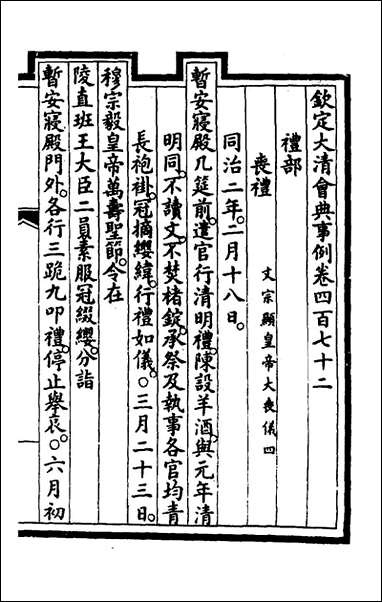 欽定大清會典事例卷四百七十二
禮部
喪禮 文宗顯皇帝大喪儀四
同治二年。二月十八日。
暫安寢殿几筵前。遣官行清明禮。陳設羊酒。與元年清
明同。不讀文。不焚楮錠。承祭及執事各官均青
長袍褂。冠摘纓緯。行禮如儀。○三月二十三日。
穆宗毅皇帝萬壽聖節。令在
陵直班王大臣二員素服冠綴纓。分詣
暫安寢殿門外。各行三跪九叩禮。停止舉哀。○六月初